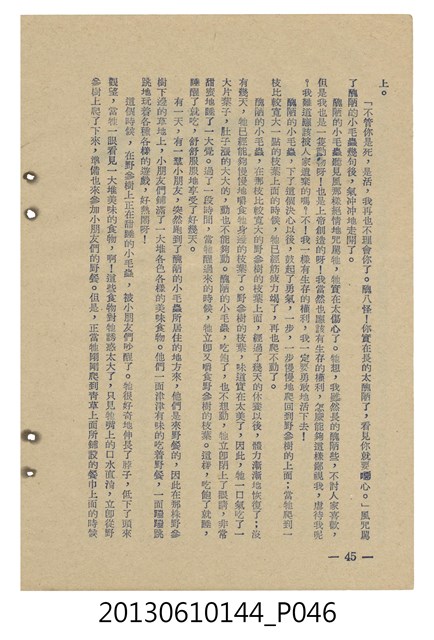 上。
「不管你是死，是活，我再也不理會你了。醜八怪！你實在長的太醜陋了，看見你就要噁心。」風咒罵
了醜陋的小毛蟲幾句後，氣冲冲地走開了。
醜陋的小毛蟲聽見風那樣絕情地咒罵牠，牠實在太傷心了。牠想，我雖然長的醜陋些，不討人家喜歡，
但是我也是一花動物呀！也是上帝創造的呀！我當然也應該有生存的權利，怎麼能夠這樣鄙視我，虐待我呢
？我難道應該被人家遺棄的嗎？不！我一樣有生存的權利，我一定要勇敢地活下去！
醜陋的小毛蟲，下了這個決心以後，鼓起了勇氣，一步，一步慢慢地爬回到野參樹的上面；當牠爬到一
枝比較寬大一點的枝葉上面的時候，牠已經筋疲力竭了，再也爬不動了。
醜陋的小毛蟲，在那枝比較寬大的野參樹的枝葉上面，經過了幾天的休養以後，體力漸漸地恢復了；沒
有幾天，牠已經能夠慢慢地嚼食牠身邊的枝葉了。野參樹的枝葉，味道實在太美了，因此，牠一口氣吃了一
大片葉子，肚子漲的大大的，動也不能夠動。醜陋的小毛蟲，吃飽了，也不想動，牠立即閉上了眼睛，非常
甜蜜地睡了一大覺。過了一段時間，當牠醒過來的時候，牠立即又嚼食野參樹的枝葉。這樣，吃飽了就睡，
睡醒了就吃，舒舒服服地享受了好幾天。
有一天，有一羣小朋友，突然跑到了醜陋的小毛蟲所居住的地方來，他們是來野餐的，因此在那株野參
樹下邊的草地上，小朋友們鋪滿了一大堆各色各樣的美味食物。他們一面津津有味的吃着野餐，一面蹦蹦跳
跳地玩着各種各樣的遊戲，好熱鬧呀！
這個時候，在野參樹上正在甜睡的小毛蟲，被小朋友們吵醒了。牠很好奇地伸長了脖子，低下了頭來
觀望，當牠一眼看見一大堆美味的食物，啊！這些食物對牠誘惑太大了，只見牠嘴上的口水直淌，立即從野
參樹上爬了下來，準備也來參加小朋友們的野餐。但是，正當牠剛剛爬到青草上面所鋪設的餐巾上面的時候
— 45 —
20130610144_P046